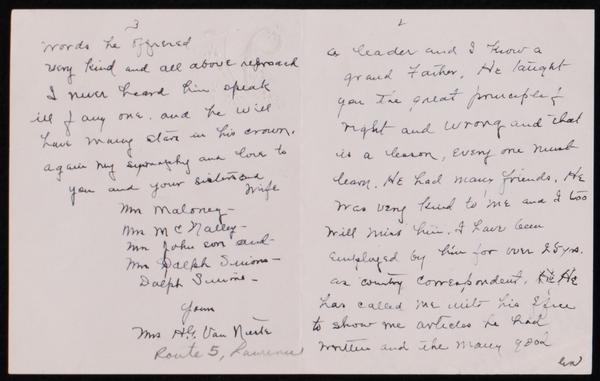 2
a leader and I know a
grand Father. He taught
you the great principle of
right and wrong and that
is a lesson, every one must
learn. He had many friends. He
was very kind to me and I too
will miss him. I have been
employed by him for over 25 yrs.
as country correspondent. He He
has called me into his office
to show me articles he had
written and the many good
3
words he offered
very kind and all above reproach
I never heard him speak
ill of any one. and he will
have many stars in his crown.
again my sympathy and love to
you and your sisters and
Wife
Mrs Maloney-
Mrs McNalley-
Mrs John son and-
Mrs Dalph Simons-
Dalph Simons-
Yours
Mrs H.G. Van
Route 5, Lawrence